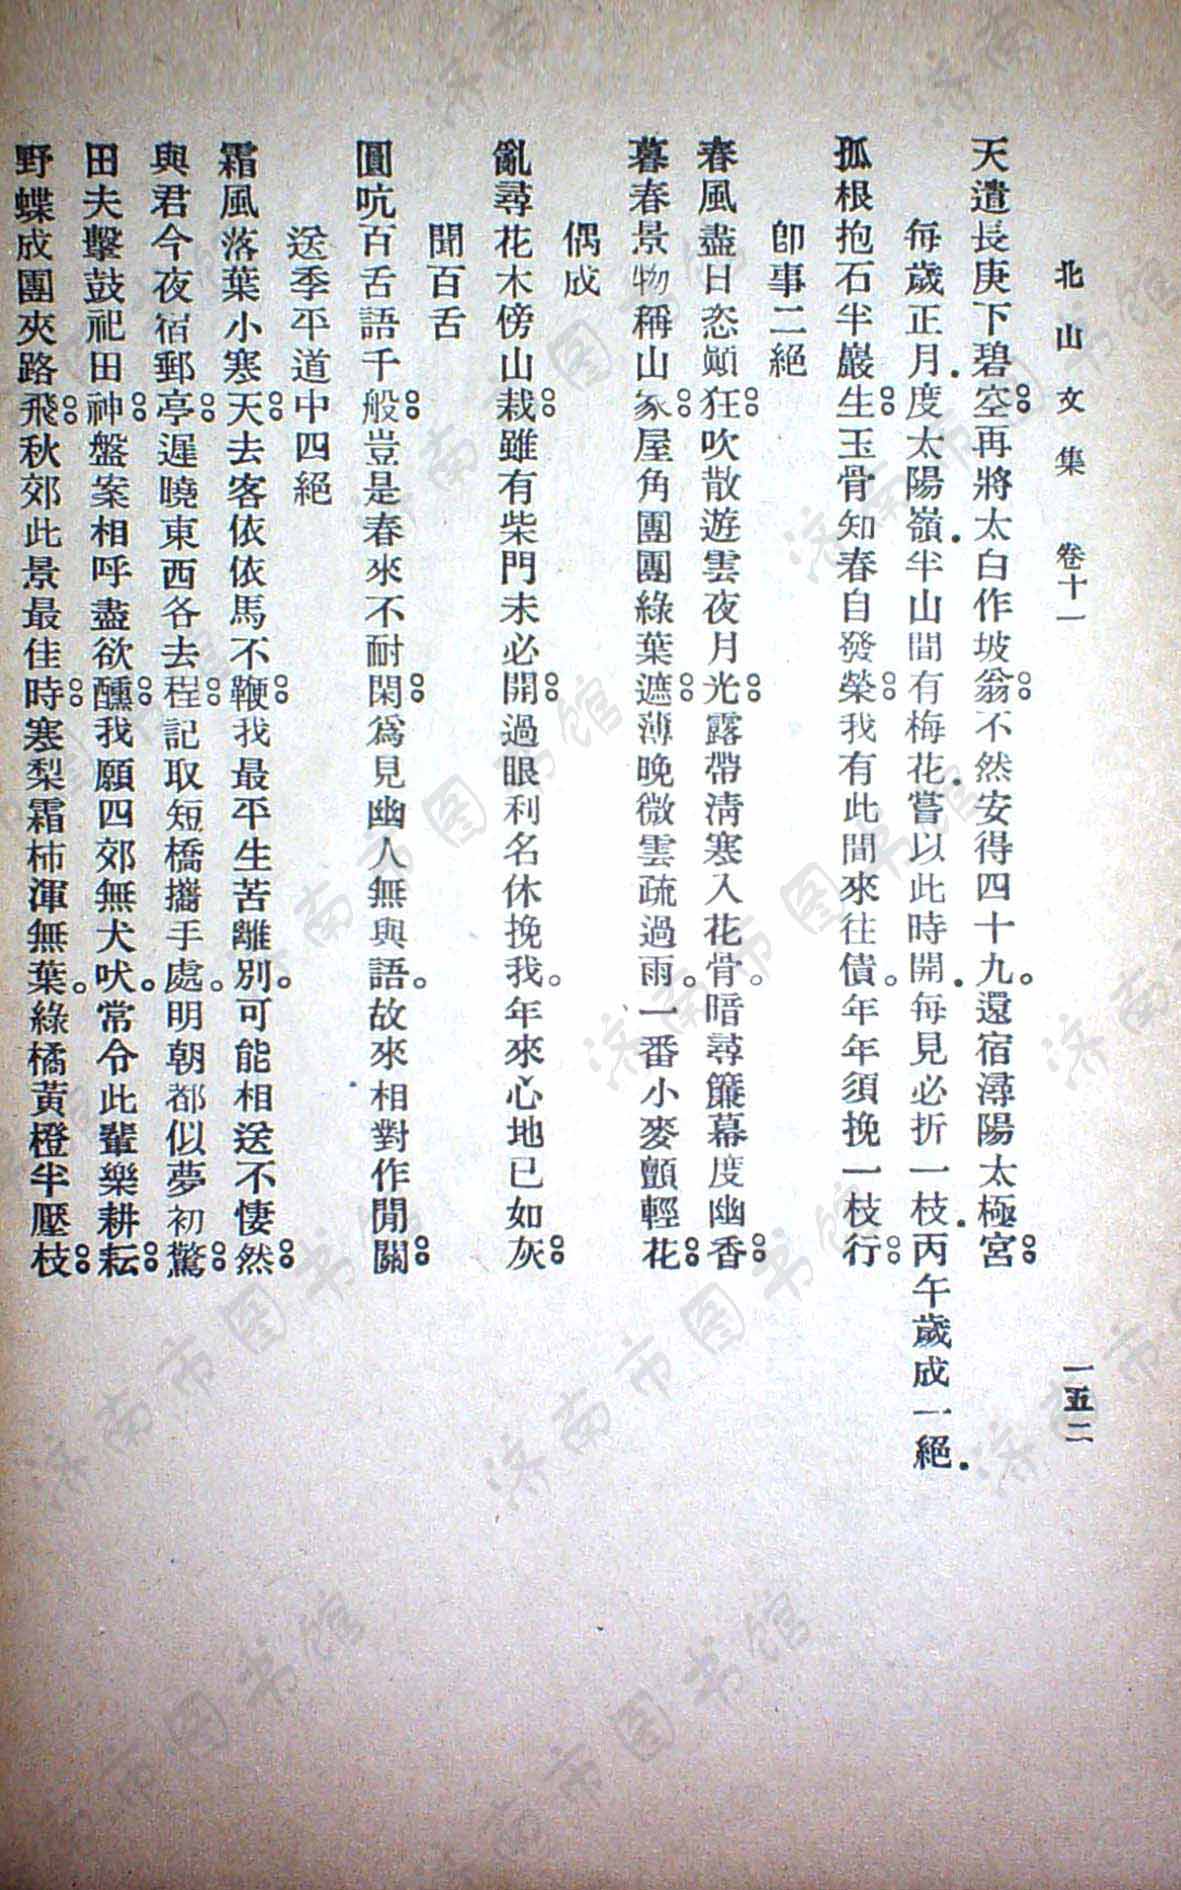 北山文集　卷十一　一五二
天遣長庚下碧空。再將太白作坡翁。不然安得四十九。還宿潯陽太極宮。
每歲正月.度太陽嶺.半山間有梅花.嘗以此時開.每見必折一枝.丙午歲成一絕.
孤根抱石半巖生。玉骨知春自發榮。我有此間來往債。年年須挽一枝行。
卽事二絕
春風盡日恣顚狂。吹散遊雲夜月光。露帶淸寒入花骨。暗尋簾幕度幽香。
暮春景物稱山家。屋角團團綠葉遮。薄晚微雲疏過雨。一番小麥顫輕花。
偶成
亂尋花木傍山栽。雖有柴門未必開。過眼利名休挽我。年來心地已如灰。
聞百舌
圓吭百舌語千般。豈是春來不耐閑。爲見幽人無與語。故來相對作閒關。
送季平道中四絕
霜風落葉小寒天。去客依依馬不鞭。我最平生苦離別。可能相送不悽然。
與君今夜宿郵亭。遲曉東西各去程。記取短橋攜手處。明朝都似夢初驚。
田夫擊鼓祀田神。盤案相呼盡欲醺。我願四郊無犬吠。常令此輩樂耕耘。
野蝶成團夾路飛。秋郊此景最佳時。寒梨霜柿渾無葉。綠橘黃橙半壓枝。
济南市图书馆